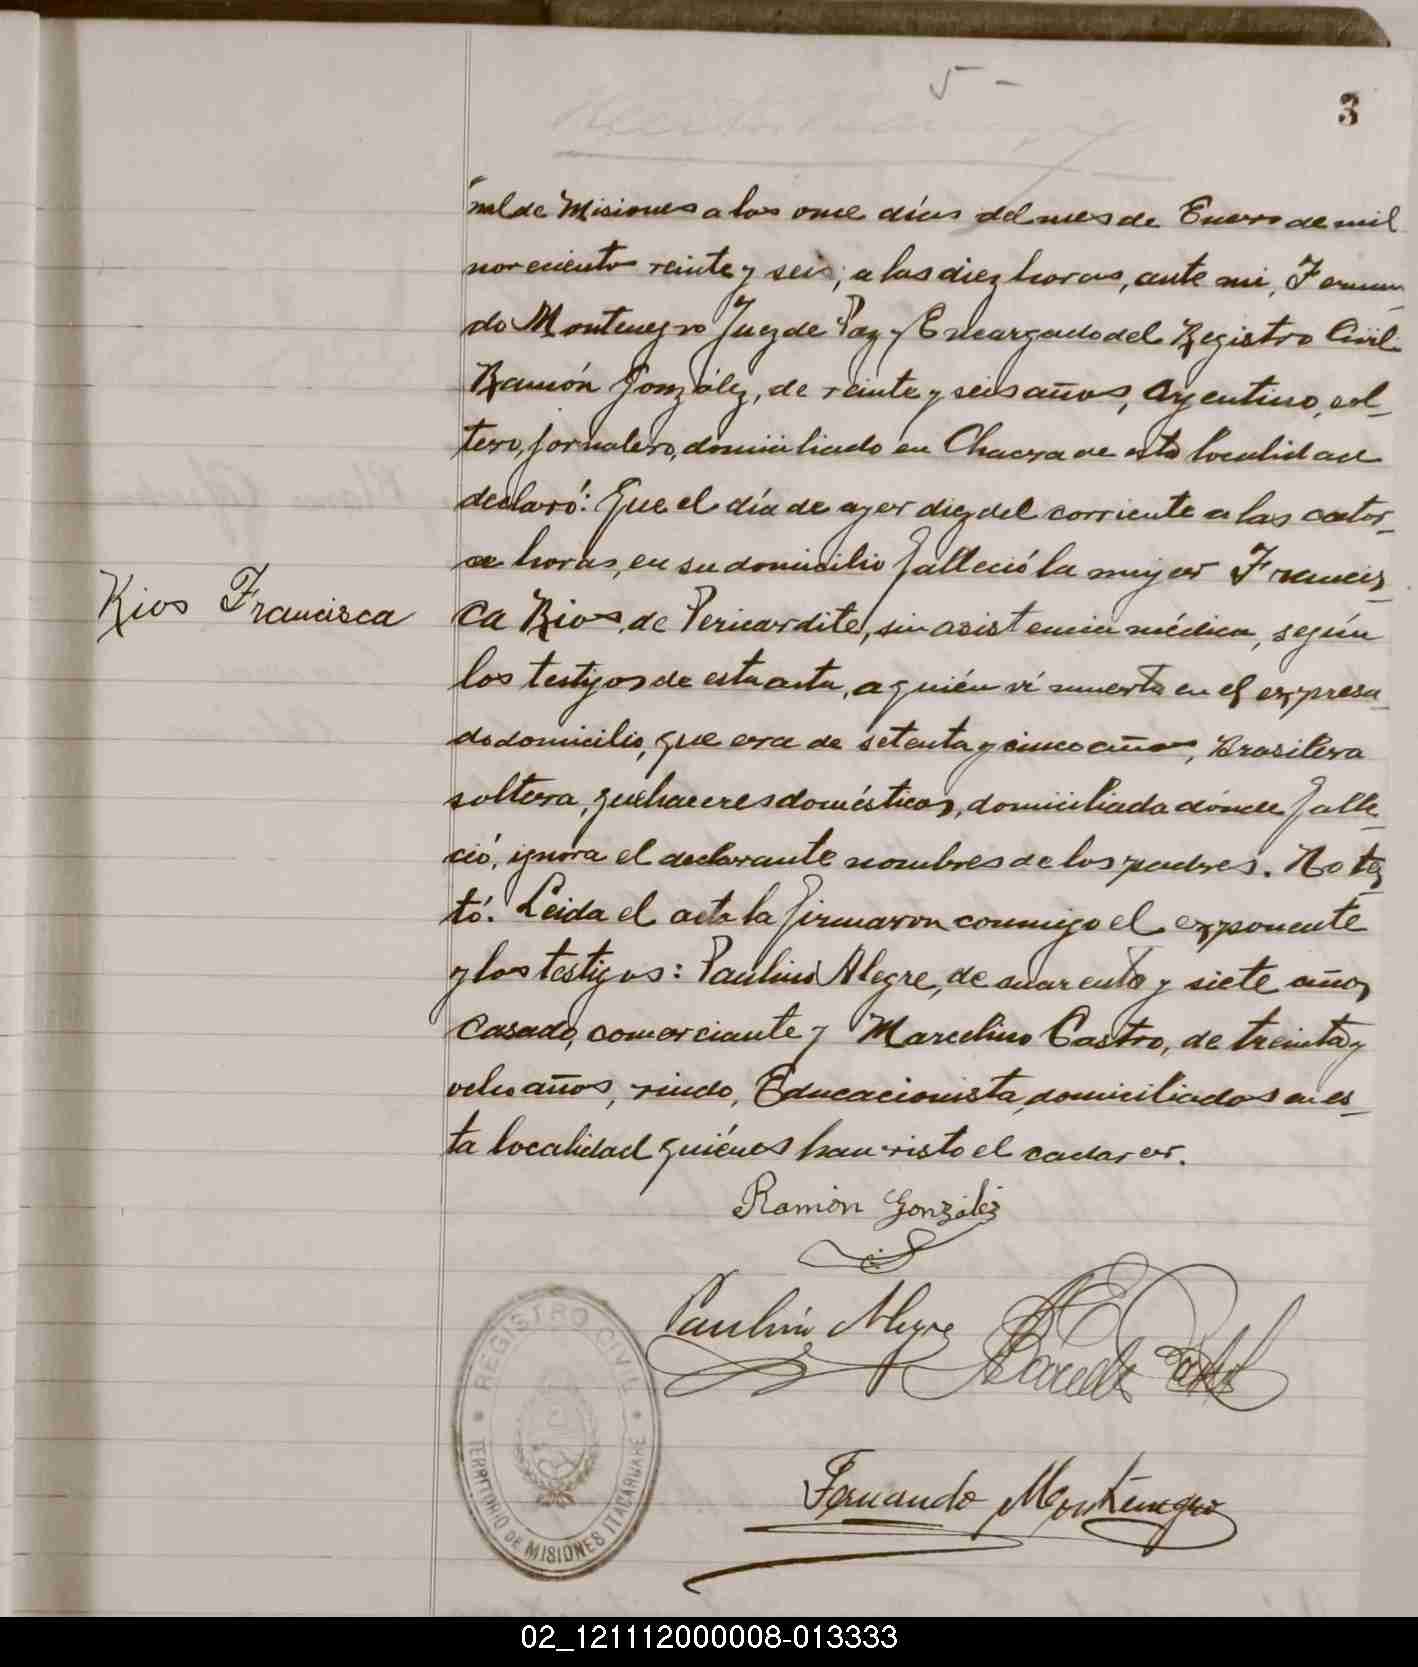 5-
3
nal de Misiones a los once días del mes de Enero de mil
novecientos veinte y seis, a las diez horas, ante mi, Fernan-
do Montenegro Juez de Paz y Encargado del Registro Civil
Ramón González, de veinte y seis años, Argentino, sol-
tero, jornalero, domiciliado en Chacra de esta localidad
declaró: Que el día de ayer diez del corriente a las cator-
ce horas, en su domicilio falleció la mujer Francis-
Rios Francisca
ca Rios, de Pericardite, sin asistencia médica, según
los testigos de esta acta, a quién ví muerta en el expresa-
do domicilio, que era de setenta y cinco años, Brasilera
soltera, quehaceres domésticos, domiciliada dónde falle-
ció, ignora el declarante nombres de los padres. No tes-
tó. Leida el acta la firmaron conmigo el exponente
y los testigos: Paulino Alegre, de cuarenta y siete años,
casado, comerciante y Marcelino Castro, de treinta y
ocho años, viudo, Educacionista, domiciliados en es-
ta localidad quiénes han visto el cadaver.
Ramón González
Paulino Alegre
Fernando Montenegro
REGISTRO CIVIL
TERRITORIO DE MISIONES ITACARUARÉ
02_121112000008-013333